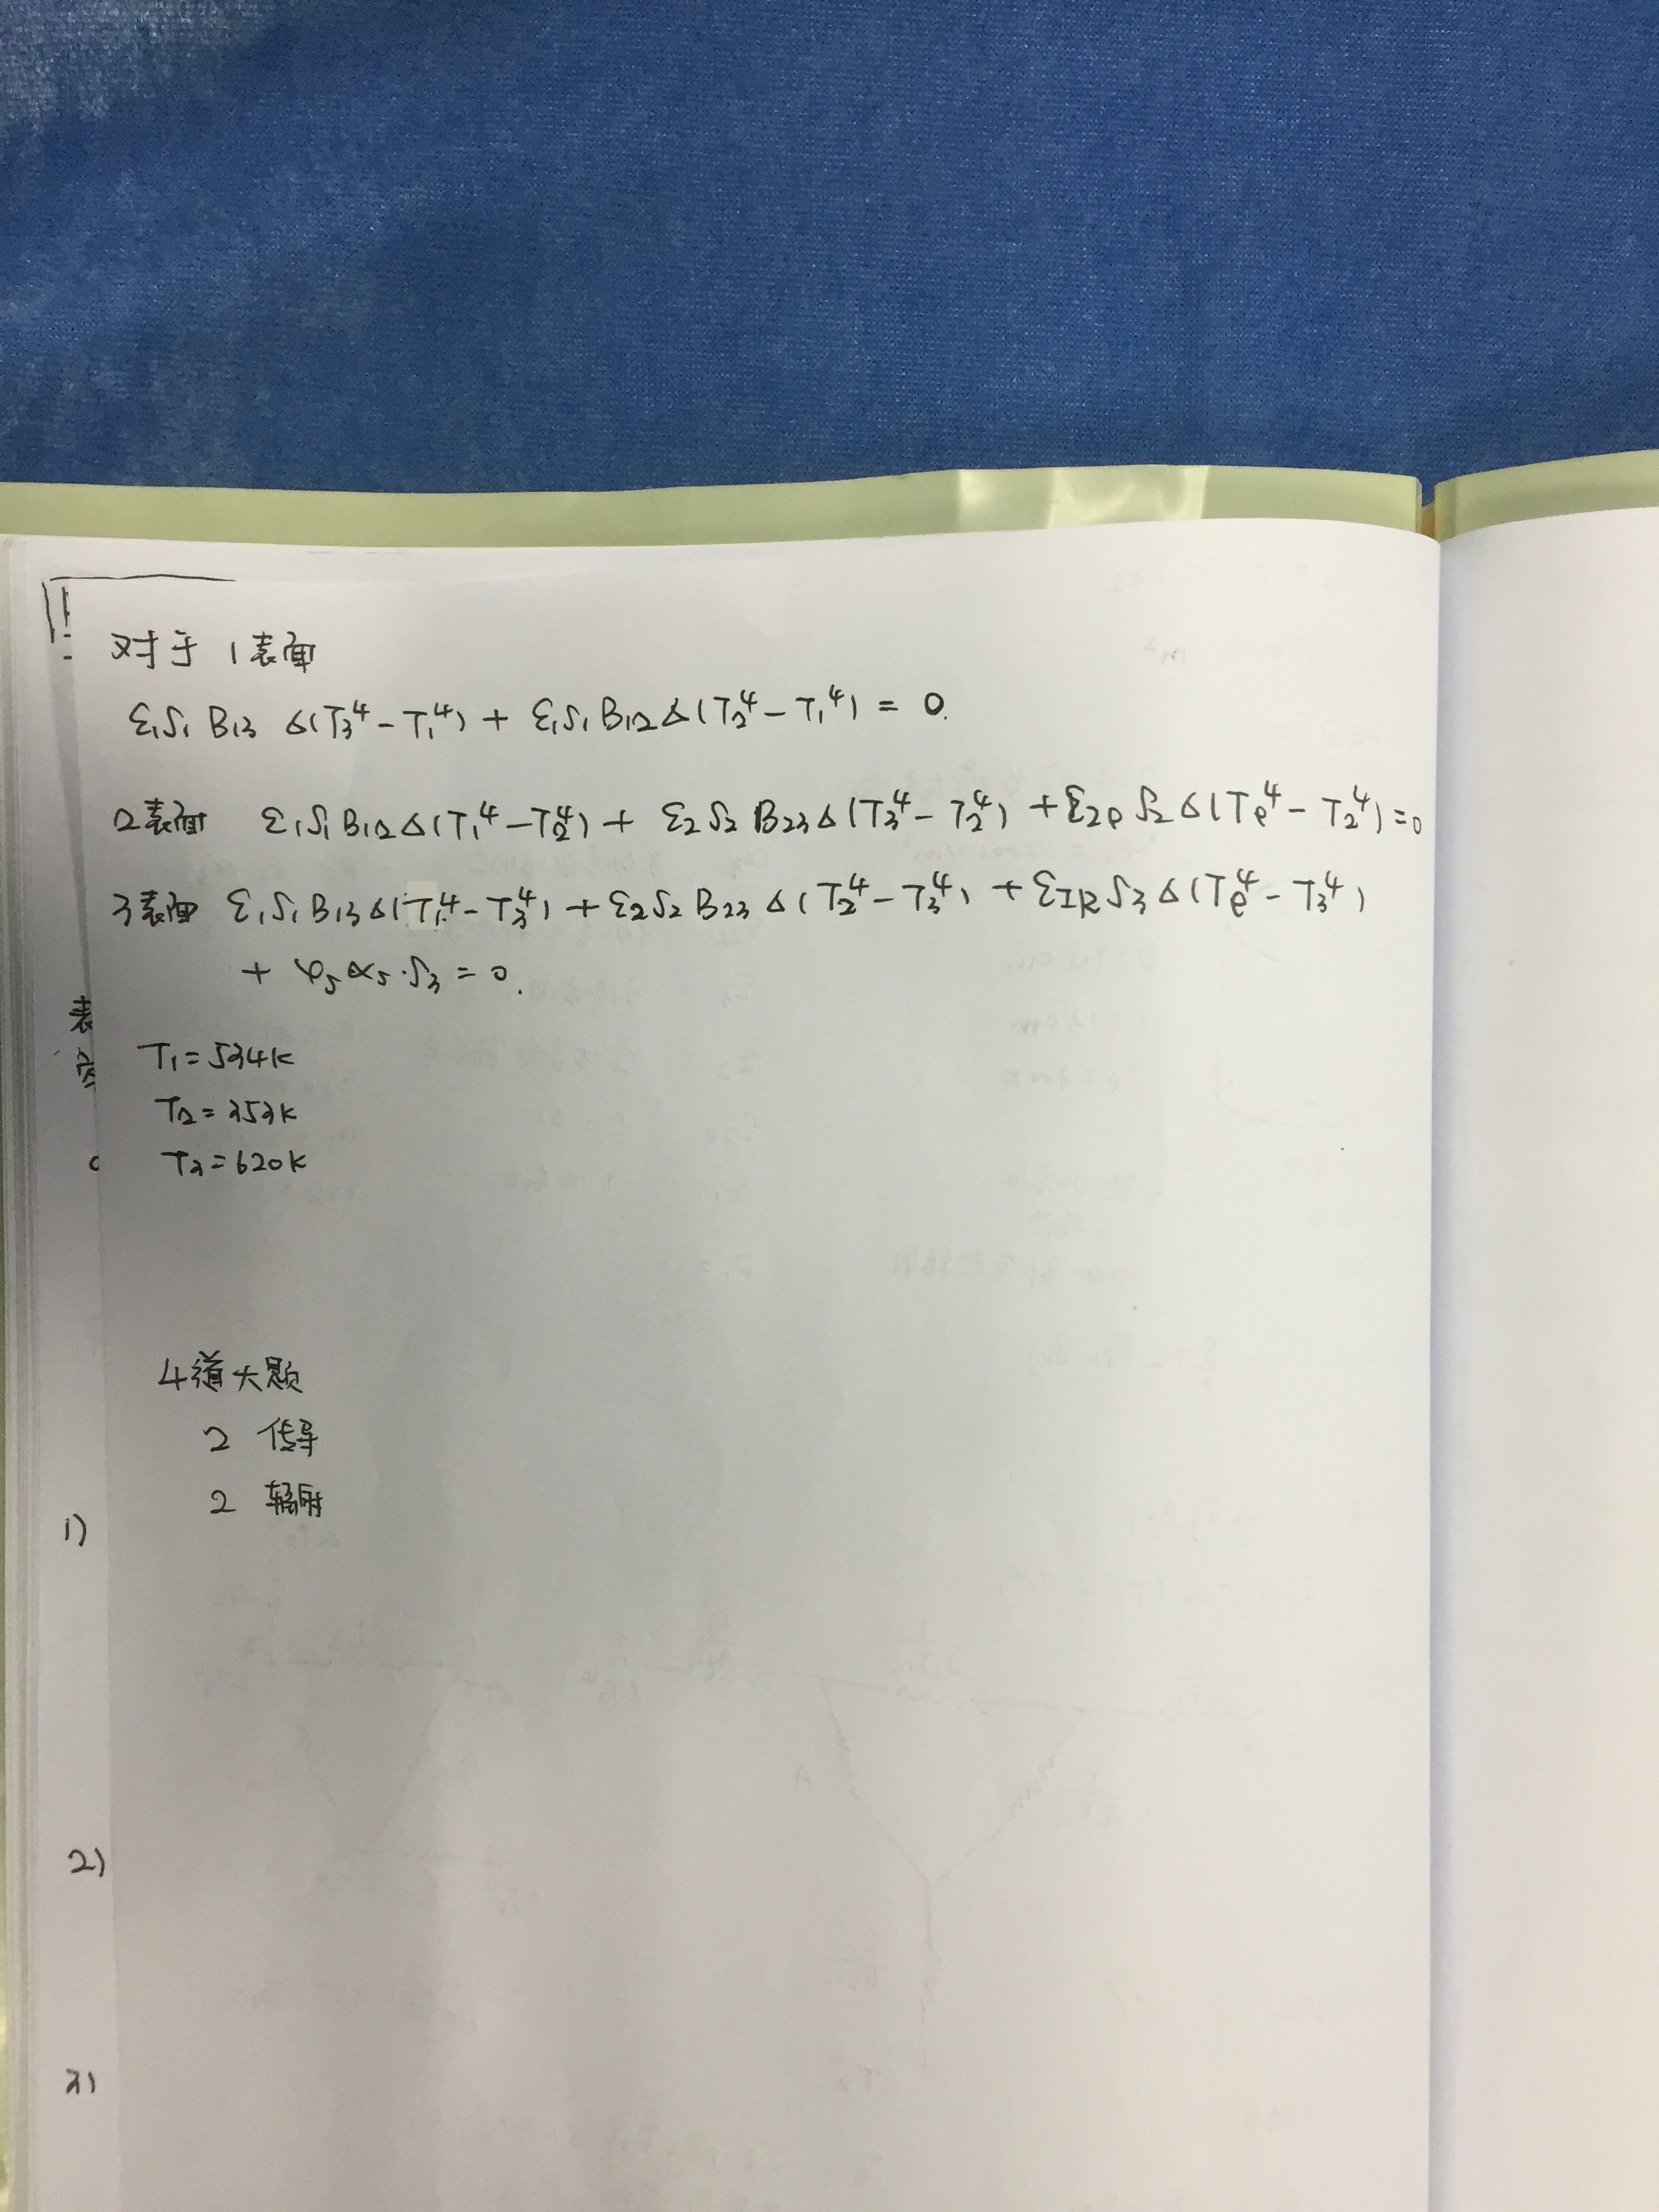 对于 1表面
ε₁S₁ B₁₃ δ(T₃⁴-T₁⁴) + ε₁S₁B₁₂δ(T₂⁴-T₁⁴) = 0.
2表面 ε₁S₁B₁₂δ(T₁⁴-T₂⁴) + ε₂S₂B₂₃δ(T₃⁴-T₂⁴) + ε₂ₑS₂δ(Tₑ⁴-T₂⁴)=0
3表面 ε₁S₁B₁₃δ(T₁⁴-T₃⁴) + ε₂S₂B₂₃δ(T₂⁴-T₃⁴) + ε_IR S₃δ(Tₑ⁴-T₃⁴)
+ φₛαₛ·S₃ = 0.
表
T₁=534K
T₂=353K
T₃=620K
4道大题
2 传导
2 辐射
1)
2)
3)